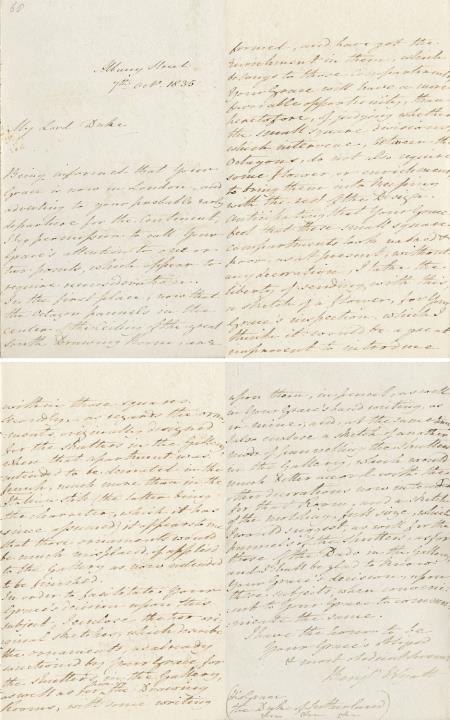 60
Albany Street
7th Octr. 1835
My Lord Duke
Being informed that Your
Grace is now in London, and
adverting to your probable early
departure for the Continent,
I beg permission to call Your
Grace's attention to one or
two points, which appear to
require consideration.
In the first place; now that
the octagon pannels in the
center of the ceiling of the great
South Drawing Room, are
formed, and have got the
enrichment in them, which
belongs to those compartments,
Your Grace will have a more
favorable opportunity, than
heretofore, of judging whether
the small square divisions
which intervene, between the
Octagons, do not also require
some flower, or enrichment,
to bring them into keeping
with the rest of the Design.
Anticipating that Your Grace
feel that those small square
compartments look naked &
poor, as at present, without
any decoration, I take the
liberty of sending, with this
a sketch of a flower, for Your
Grace's inspection, which I
think it would be a great
improvement to introduce
within those squares.
Secondly, as regards the orna-
ments originally designed
for the Shutters in the Gallery,
when that apartment was
intended to be decorated in the
French, much more than in the
Italian style, (the latter being
the character, which it has
since assumed) it appears to me
that those ornaments would
be much misplaced, if applied
to the Gallery as now intended
to be finished.
In order to facilitate Your
Grace's decision upon this
subject, I enclose the two ori-
ginal sketches, which describe
the ornaments, as already
sanctioned by Your Grace, for
the shutters in the Gallery,
as well as for the Drawing
Rooms, with some writing
upon them, in pencil, as well
in Your Grace's hand writing, as
in mine; and, at the same time,
I also enclose a sketch of another
mode of pannelling the Shutters
in the Gallery, which would
much better accord with the
other decorations now intended
for that Room, and a sketch
of the molding, full size, which
I would suggest as well for the
pannels of the Shutters, as for
those of the Dado in the Gallery,
and I shall be glad to know
Your Grace's decision, upon
these subjects, when conveni-
ent to Your Grace to commu-
nicate the same.
I have the honor to be
Your Grace's obliged
& most obedient Servant
Benjn. Wyatt
His Grace
the Duke of Sutherland